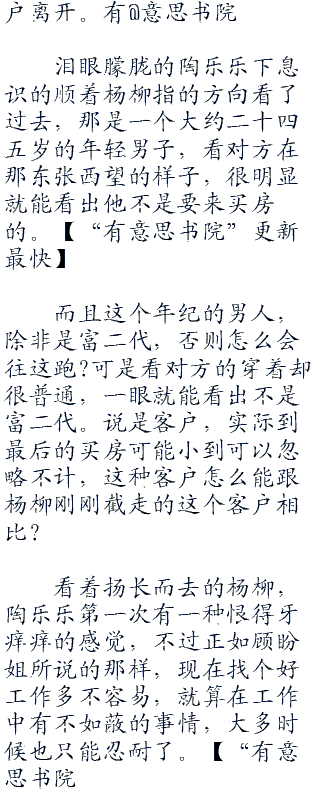 户离开。有@意思书院
泪眼朦胧的陶乐乐下意
识的顺着杨柳指的方向看了
过去，那是一个大约二十四
五岁的年轻男子，看对方在
那东张西望的样子，很明显
就能看出他不是要来买房
的。【“有意思书院”更新
最快】
而且这个年纪的男人，
除非是富二代，否则怎么会
往这跑?可是看对方的穿着却
很普通，一眼就能看出不是
富二代。说是客户，实际到
最后的买房可能小到可以忽
略不计，这种客户怎么能跟
杨柳刚刚截走的这个客户相
比？
看着扬长而去的杨柳，
陶乐乐第一次有一种恨得牙
痒痒的感觉，不过正如顾盼
姐所说的那样，现在找个好
工作多不容易，就算在工作
中有不如蔽的事情，大多时
候也只能忍耐了。【“有意
思书院